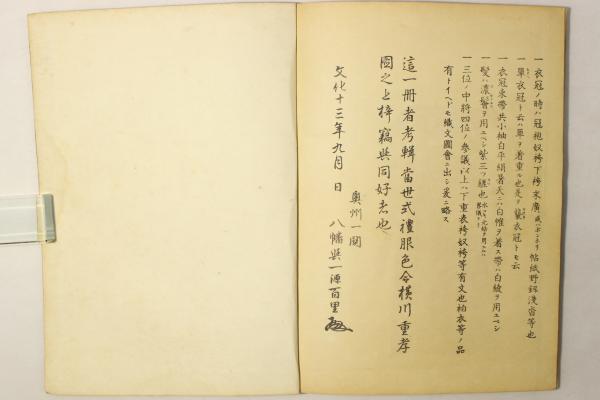 一衣冠ノ時ハ冠袍奴袴下袴末廣或ハボンボリ帖紙野釼浅沓等也
一單衣冠ト云ハ單ヲ着重ル也是ヲ襲衣冠トモ云
一衣冠束帶共小袖白平絹暑天ニハ白帷ヲ着ス帶ハ白綾ヲ用ユベシ
一髪ハ濃ヲ用ユベシ紫三ツ縒也
一三位ノ中將四位ノ參議以上ハ下重表袴奴袴等有文也袙衣等ノ品
有トイヘドモ織文圖會ニ出シ爰ニ略ス
這一冊者考輯當世式禮服色令横川重孝
圖之上梓竊與同好者也
奥州一関
文化十三年九月 日 八幡與一源百里